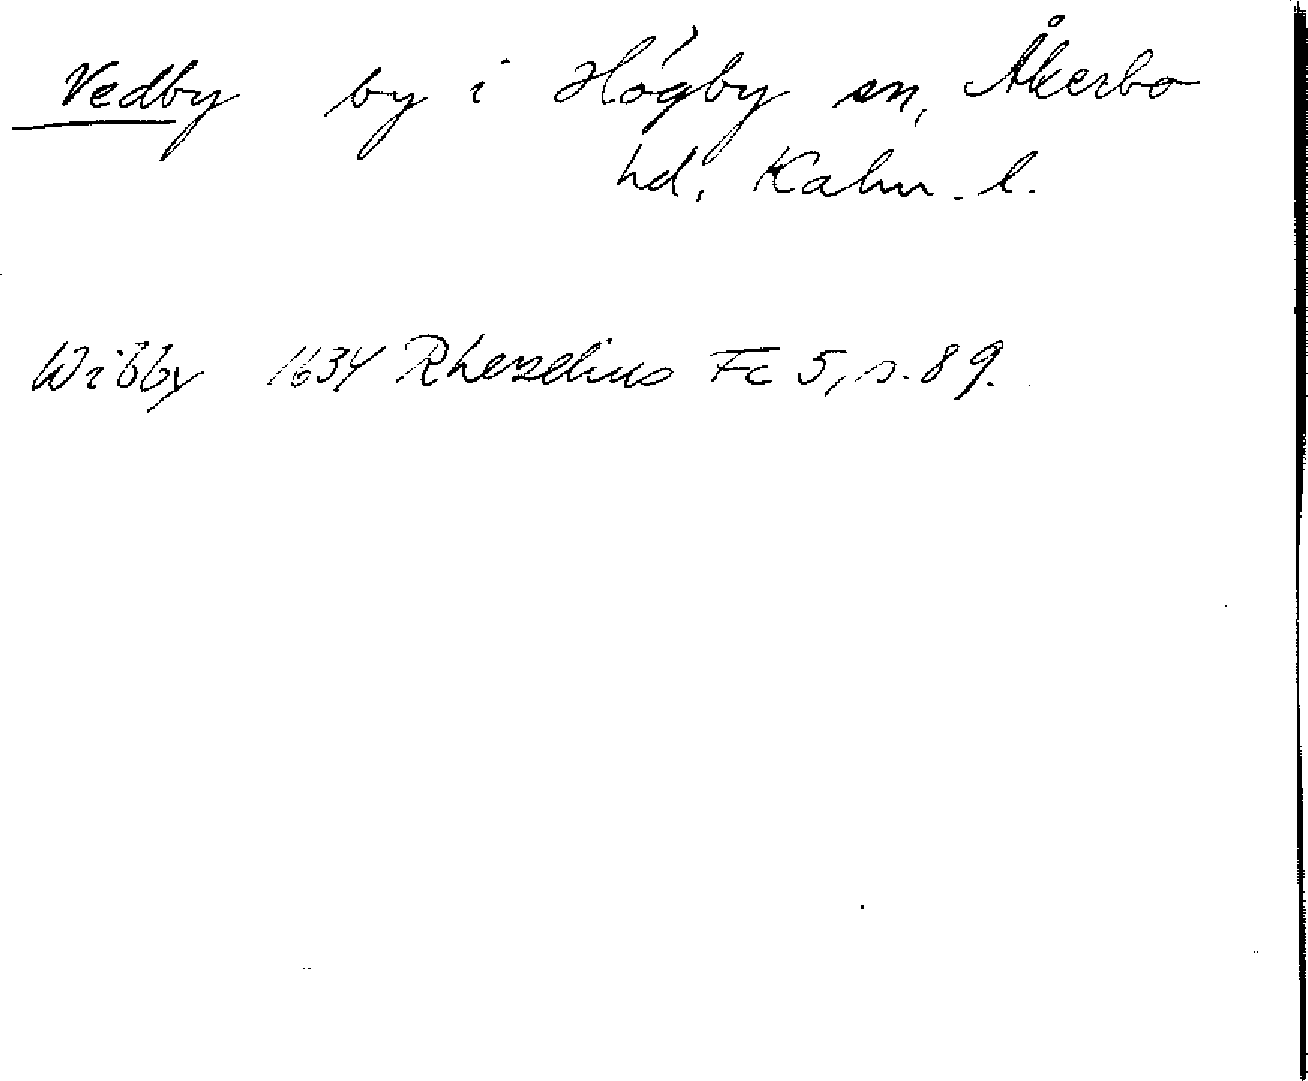 Vedby by i Högby sn, Åkerbo
hd, Kalm. l.
Wibby 1634 Rhezelius Fc 5, s. 89.